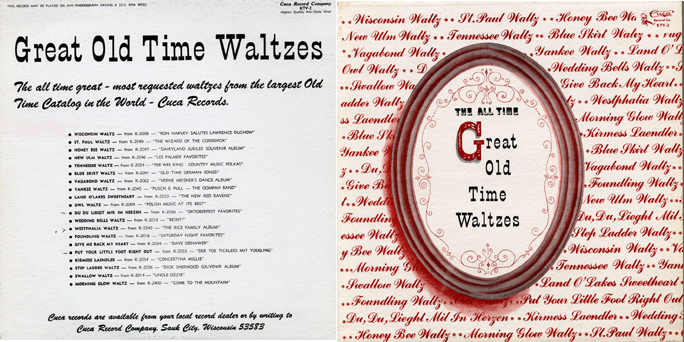 THIS RECORD MAY BE PLAYED ON ANY PHONOGRAPH HAVING A 33⅓ RPM SPEED
Cuca Record Company
KTV-2
Highest Quality Anti-Static Vinyl
Great Old Time Waltzes
The all time great - most requested waltzes from the largest Old
Time Catalog in the World - Cuca Records.
WISCONSIN WALTZ — from K-2008 — "RON HARVEY SALUTES LAWRENCE DUCHOW"
ST. PAUL WALTZ — from K-2040 — "THE WIZARD OF THE CORDOVOX"
HONEY BEE WALTZ — from K-2047 — "DAIRYLAND JUBILEE SOUVENIR ALBUM"
NEW ULM WALTZ — from K-2046 — "LES PALMER FAVORITES"
TENNESSEE WALTZ — from K-2024 — "PEE WEE KING - COUNTRY MUSIC POLKAS"
BLUE SKIRT WALTZ — from K-2041 — "OLD TIME GERMAN SONGS"
VAGABOND WALTZ — from K-2062 — "VERNE MEISNER'S DANCE ALBUM"
YANKEE WALTZ — from K-2045 — "PLISCH & PULL - THE DOMPAH BAND"
LAND O'LAKES SWEETHEART — from K-2023 — "THE NEW RED RAVENS"
OWL WALTZ — from K-2004 — "POLISH MUSIC AT ITS BEST"
DU DU LIEGST MIR IM HERZEN — from K-2036 — "OKTOBERFEST FAVORITES"
WEDDING BELLS WALTZ — from K-2010 — "REINY"
WESTPHALIA WALTZ — from — "THE RICE FAMILY ALBUM"
FOUNDLING WALTZ — from K-2016 — "SATURDAY NIGHT FAVORITES"
GIVE ME BACK MY HEART — from — "DAVE SEEHAWER"
PUT YOUR LITTLE FOOT RIGHT OUT — from K-2053 — "DER TOE TICKLERS MIT YODELING"
KIRMESS LAENDLER — from K-2054 — "CONCERTINA MILLIE"
STEP LADDER WALTZ — from K-2026 — "DICK SHERWOOD SOUVENIR ALBUM"
SWALLOW WALTZ — from K-2014 — "UNCLE OZZIE"
MORNING GLOW WALTZ — from K-2400 — "COME TO THE MOUNTAIN"
Cuca records are available from your local record dealer or by writing to
Cuca Record Company, Sauk City, Wisconsin 53583
Cuca
Record Co.
KTV-2
Wisconsin Waltz St. Paul Waltz Honey Bee Wa
New Ulm Waltz Tennessee Waltz Blue Skirt Waltz
Vagabond Waltz Yankee Waltz Land O'L
Owl Waltz D Wedding Bells Waltz
Swallow Wa Give Back My Heart
adder Waltz Westphalia Waltz
ss Laendler Morning Glow Waltz
Blue Sk Kirmess Laendler
Yankee W Blue Skirt Waltz
z Du, Vagabond Waltz
Give B Foundling Waltz
t Wedd New Ulm Waltz
Foundling Du, Du, Lieght Mil
Tennesse Step Ladder Waltz
y Bee Wa Wisconsin Waltz Va
Morning G Tennessee Waltz Yan
Swallow Waltz Land O'Lakes Sweetheart
Foundling Waltz Put Your Little Foot Right Out
Du, Du, Lieght Mil In Herzen Kirmess Laendler Wedding
Honey Bee Waltz Morning Glow Waltz St. Paul Waltz
THE ALL TIME
Great
Old
Time
Waltzes